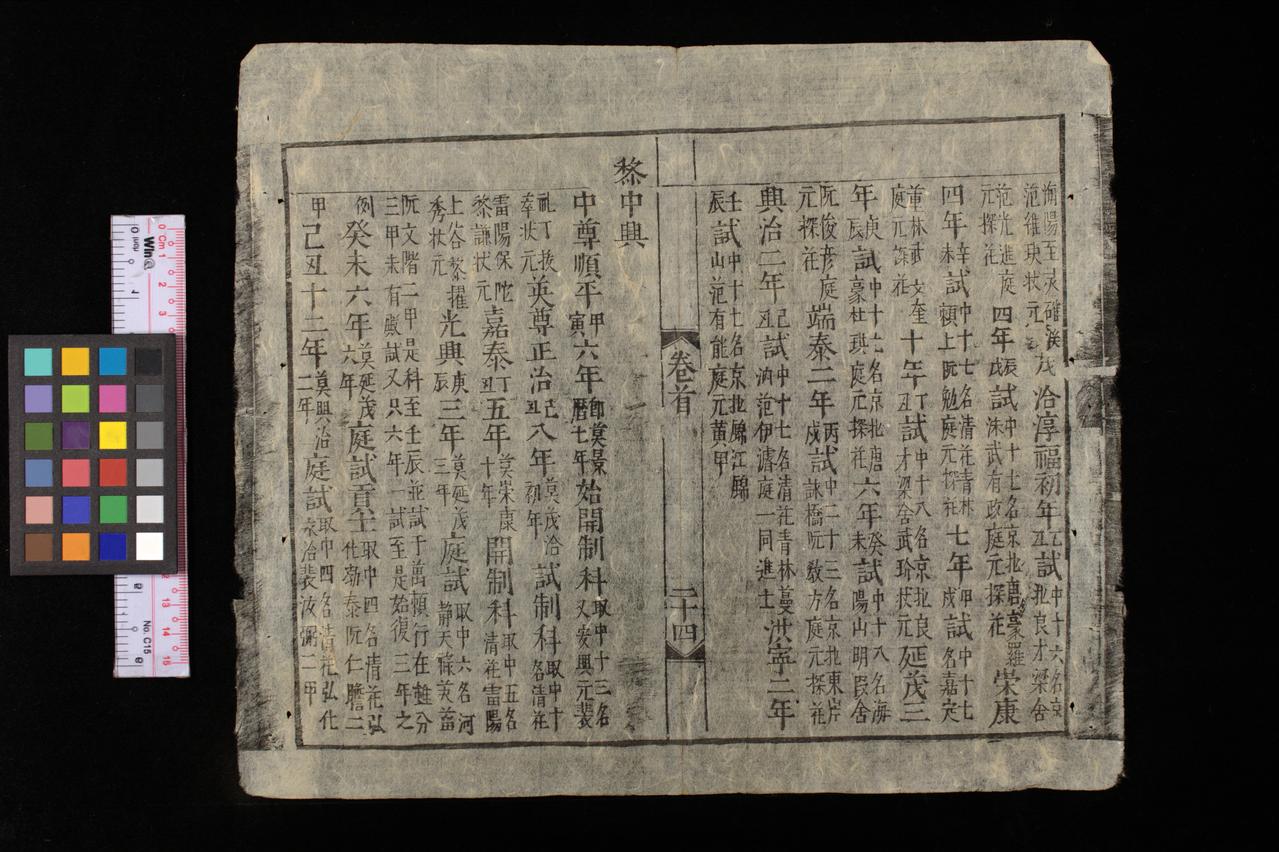 海陽至灵確溪茂洽淳福初年乙丑試中十六名京
范維玦状元北良才梁舍
范光進庭元探花四年戊辰試中十七名京北唐豪羅
洙武有政庭元探花榮康
四年辛未試中十七名清花青林
賴上阮勉庭元探花七年甲戌試中十七名嘉定
董林武文奎庭元探花十年丁丑試中十八名京北良
才梁舍武玠状元延茂三
年庚辰試中十七名京北唐豪
杜珙庭元探花六年癸未試中十八名海
陽山明段舍
阮俊彦庭元探花端泰二年丙戌試中二十三名京北東岸
詠橋阮教方庭元探花
興治二年己丑試中十七名清花青林蔓
汭范伊濬庭一同進士洪寧二年
壬辰試中十七名京北錦江錦
山范有能庭元黄甲
卷首
二十四
黎中興
中尊順平甲寅六年即莫景曆七年始開制科取中十三名
又安興元裴
軋丁拔萃状元英尊正治己丑八年莫茂洽初年試制科取中十名清花
雷陽保陀黎謙状元嘉泰丁丑五年莫崇康十年開制科取中五名
清花雷陽
上谷黎擢秀状元光興庚辰三年莫延茂三年庭試取中六名河
静天祿芙蓄
阮文階二甲是科至壬辰並試于萬賴行在雖分
三甲未有殿試又只六年一試至是始復三年之
例癸未六年莫延茂六年庭試貢士取中四名清花弘
化勃泰阮仁膽二
甲己丑十二年莫興治二年庭試取中四名清花弘化
永洽裴汝彌二甲